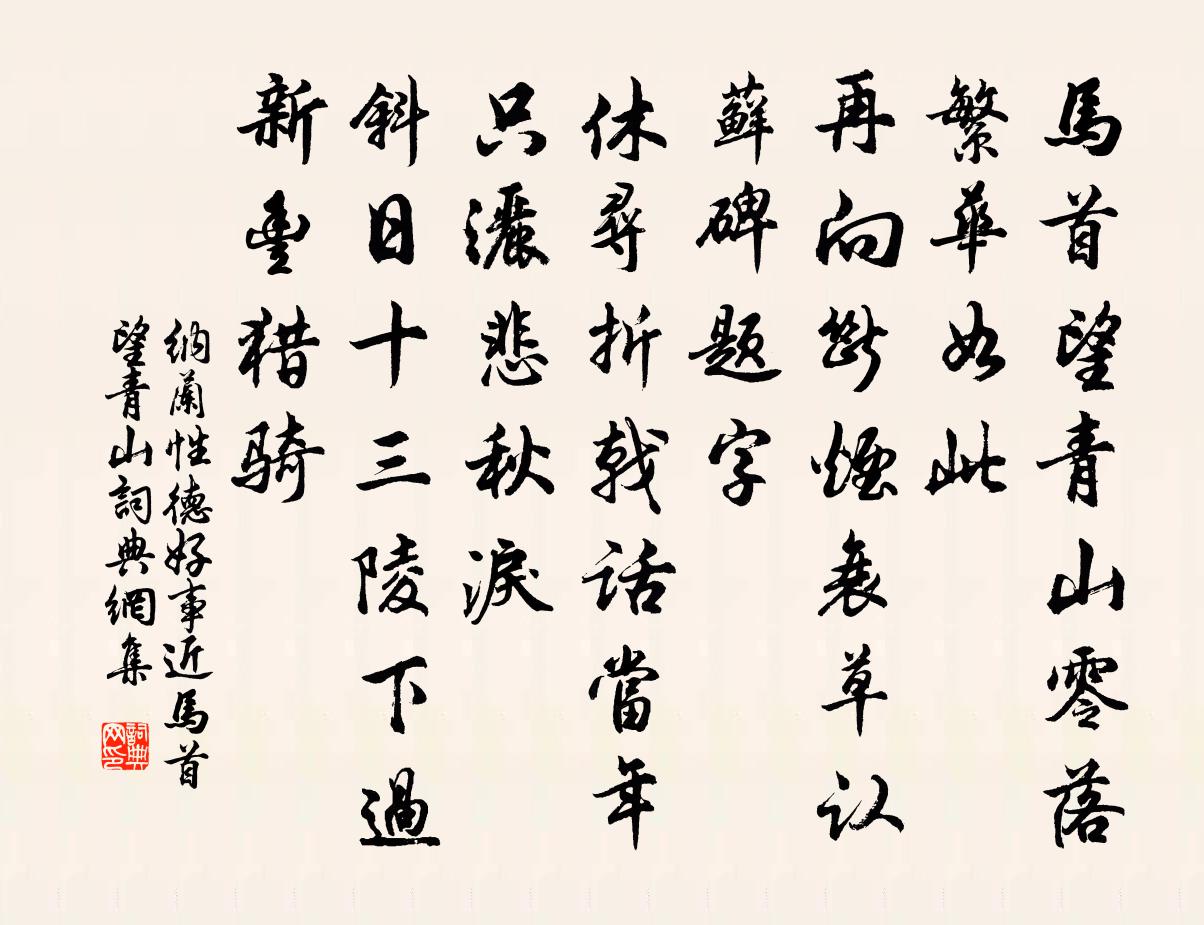 馬首望青山零落
繁華如此
再向斷煙衰草認
蘚碑題字
休尋折戟話當年
只灑悲秋淚
斜日十三陵下過
新豐猎騎
納蘭性德好事近馬首
望青山詞典網集
詞典网印